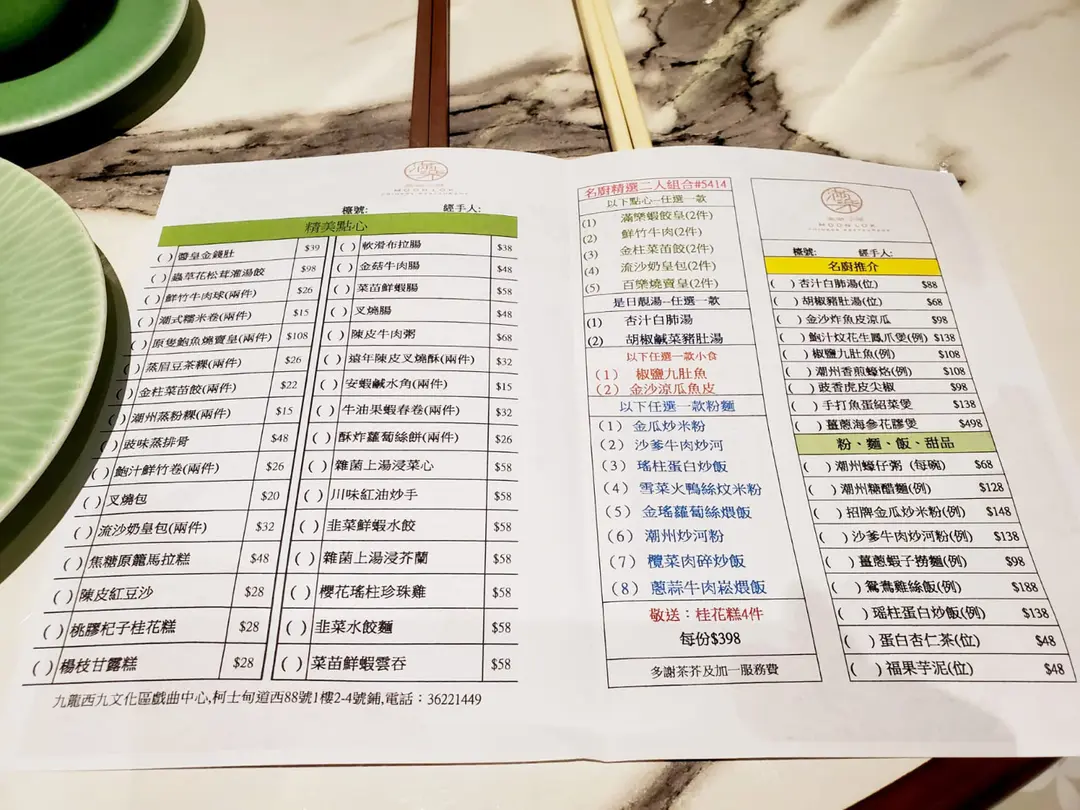 MOON LOK
CHINESE RESTAURANT
檯號: 經手人:
精美點心
( ) 醬皇金錢肚 $39
( ) 蟲草花松茸灌湯餃 $98
( ) 鮮竹牛肉球(兩件) $26
( ) 潮式糯米卷(兩件) $15
( ) 原隻鮑魚燒賣皇(兩件) $108
( ) 蒸眉豆茶粿(兩件) $26
( ) 金柱菜苗餃(兩件) $22
( ) 潮州蒸粉粿(兩件) $15
( ) 豉味蒸排骨 $48
( ) 鮑汁鮮竹卷(兩件) $26
( ) 叉燒包 $20
( ) 流沙奶皇包(兩件) $32
( ) 焦糖原籠馬拉糕 $48
( ) 陳皮紅豆沙 $28
( ) 桃膠杞子桂花糕 $28
( ) 楊枝甘露糕 $28
( ) 軟滑布拉腸 $38
( ) 金菇牛肉腸 $48
( ) 菜苗鮮蝦腸 $58
( ) 叉燒腸 $48
( ) 陳皮牛肉粥 $68
( ) 遠年陳皮叉燒酥(兩件) $32
( ) 安蝦鹹水角(兩件) $15
( ) 牛油果蝦春卷(兩件) $32
( ) 酥炸蘿蔔絲餅(兩件) $26
( ) 雜菌上湯浸菜心 $58
( ) 川味紅油炒手 $58
( ) 韭菜鮮蝦水餃 $58
( ) 雜菌上湯浸芥蘭 $58
( ) 櫻花瑤柱珍珠雞 $58
( ) 韭菜水餃麵 $58
( ) 菜苗鮮蝦雲吞 $58
九龍西九文化區戲曲中心,柯士甸道西88號1樓2-4號鋪,電話：36221449
名廚精選二人組合#5414
以下點心--任選一款
(1) 滿樂蝦餃皇(2件)
(2) 鮮竹牛肉(2件)
(3) 金柱菜苗餃(2件)
(4) 流沙奶皇包(2件)
(5) 百樂燒賣皇(2件)
是日靚湯--任選一款
(1) 杏汁白肺湯
(2) 胡椒鹹菜豬肚湯
以下任選一款小食
(1) 椒鹽九肚魚
(2) 金沙涼瓜魚皮
以下任選一款粉麵
(1) 金瓜炒米粉
(2) 沙爹牛肉炒河
(3) 瑤柱蛋白炒飯
(4) 雪菜火鴨絲炆米粉
(5) 金瑤蘿蔔絲煨飯
(6) 潮州炒河粉
(7) 欖菜肉碎炒飯
(8) 蔥蒜牛肉崧煨飯
敬送：桂花糕4件
每份$398
多謝茶芥及加一服務費
MOON LOK
CHINESE RESTAURANT
檯號: 經手人:
名廚推介
( ) 杏汁白肺湯(位) $88
( ) 胡椒豬肚湯(位) $68
( ) 金沙炸魚皮涼瓜 $98
( ) 鮑汁炆花生鳳爪煲(例) $138
( ) 椒鹽九肚魚(例) $108
( ) 潮州香煎蠔烙(例) $108
( ) 豉香虎皮尖椒 $98
( ) 手打魚蛋紹菜煲 $138
( ) 薑蔥海參花膠煲 $498
粉、麵、飯、甜品
( ) 潮州蠔仔粥 (每碗) $68
( ) 潮州糖醋麵(例) $128
( ) 招牌金瓜炒米粉(例) $148
( ) 沙爹牛肉炒河粉(例) $138
( ) 薑蔥蝦子撈麵(例) $98
( ) 鴛鴦雞絲飯(例) $188
( ) 瑤柱蛋白炒飯(例) $138
( ) 蛋白杏仁茶(位) $48
( ) 福果芋泥(位) $48